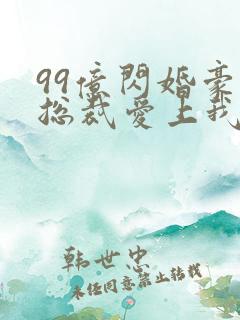 99億閃婚豪
总裁爱上我
韩世忠
未经同意禁止转载